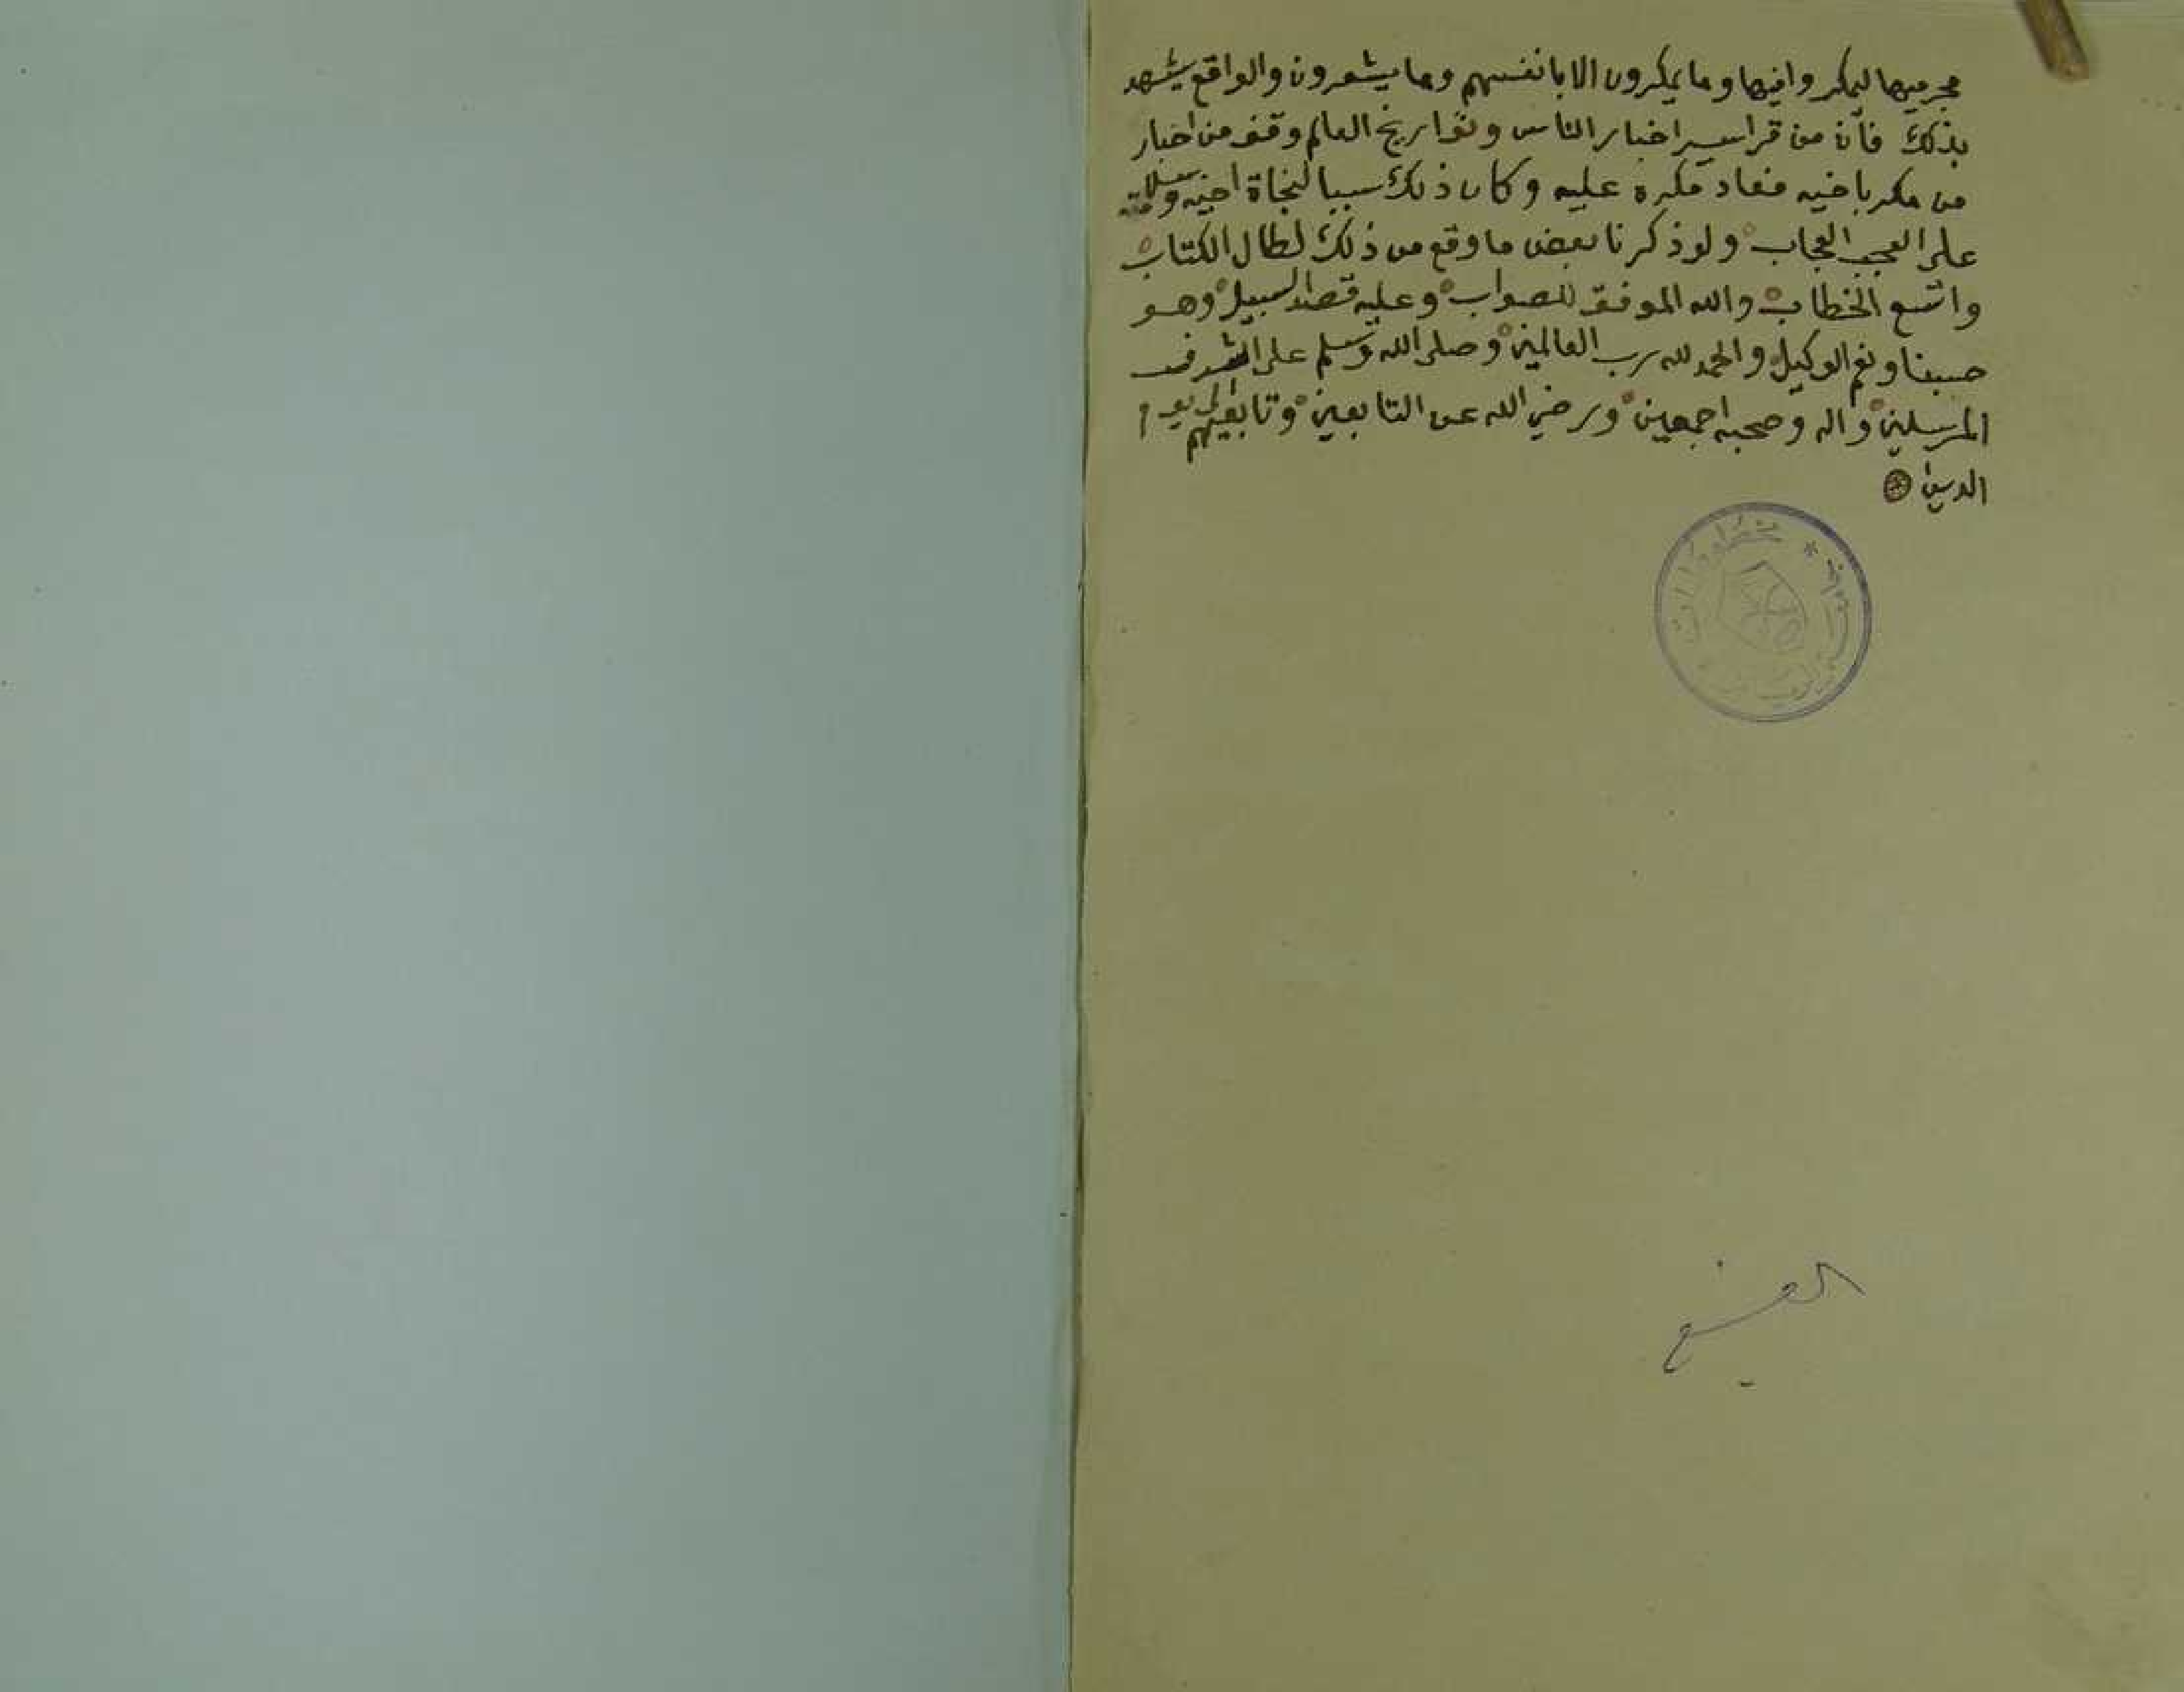 مجرميها ليمكروا فيها وما يمكرون الا بانفسهم وما يشعرون والواقع يشهد
بذلك فأن من قرا سير اخبار الناس وتواريخ العالم وقف من اخبار
من مكر باخيه فعاد مكره عليه وكان ذلك سببا لنجاة اخيه وسلامته
على العجب العجاب ولو ذكرنا بعض ما وقع من ذلك لطال الكتاب
واتسع الخطاب والله الموفق للصواب وعليه قصد السبيل وهو
حسبنا ونعم الوكيل والحمد لله رب العالمين وصلى الله وسلم على اشرف
المرسلين واله وصحبه اجمعين ورضي الله عن التابعين وتابعيهم الى يوم
الدين
مخطوطات